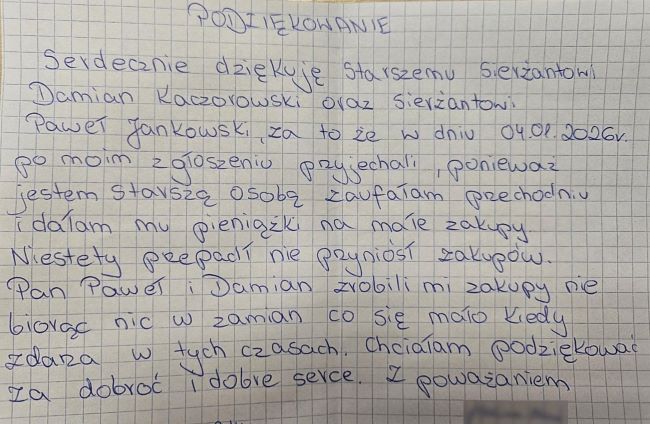 PODZIĘKOWANIE
Serdecznie dziękuję Starszemu Sierżantowi
Damian Kaczorowski oraz Sierżantowi
Paweł Jankowski, za to że w dniu 04.01.2026r.
po moim zgłoszeniu przyjechali, ponieważ
jestem starszą osobą zaufałam przechodniu
i dałam mu pieniążki na małe zakupy.
Niestety przepadł nie przyniósł zakupów.
Pan Paweł i Damian zrobili mi zakupy nie
biorąc nic w zamian co się mało kiedy
zdaża w tych czasach. Chciałam podziękować
za dobroć i dobre serce. Z poważaniem